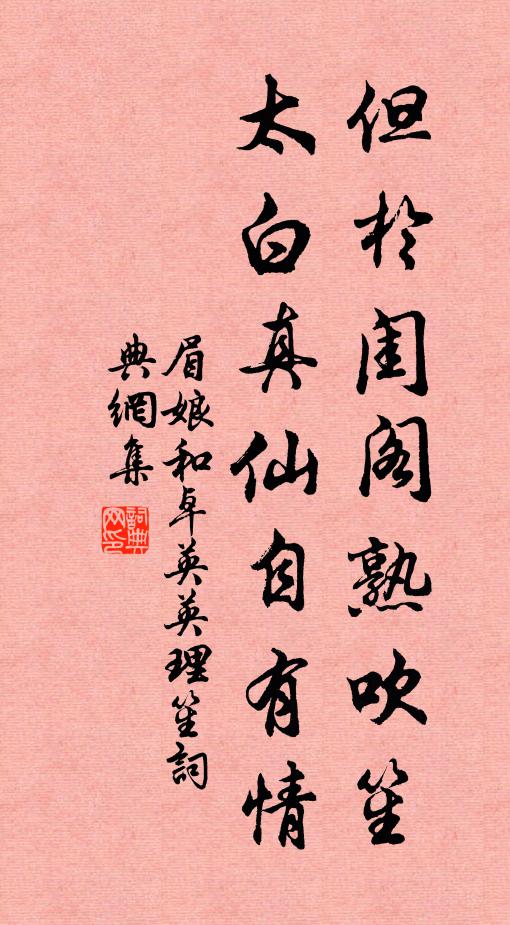 但於閨閣熟吹笙
太白真仙自有情
眉娘和卓英英理笙詞
典網集
詞典網印